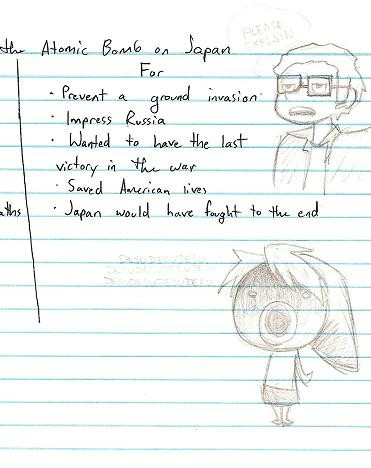 PLEASE
EXPLAIN
the Atomic Bomb on Japan
For
· Prevent a ground invasion
· Impress Russia
· Wanted to have the last
victory in the war
· Saved American lives
· Japan would have fought to the end
DESUDESUDESU
DESUDESUDESU
DESUDESUDESU